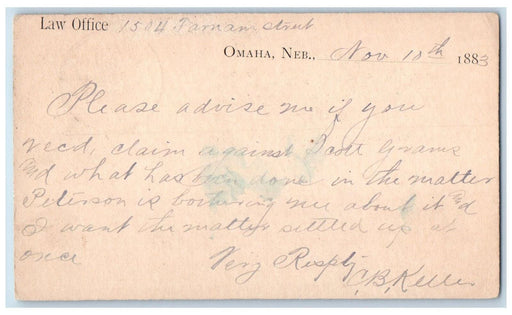 Law Office 1504 Farnam Street
OMAHA, NEB., Nov 10th 1883
Please advise me if you
recd, claim against Scott Grams
and what has been done in the matter
Peterson is bothering me about it and
I want the matter settled up at
once
Very Resptly
C.B. Keller